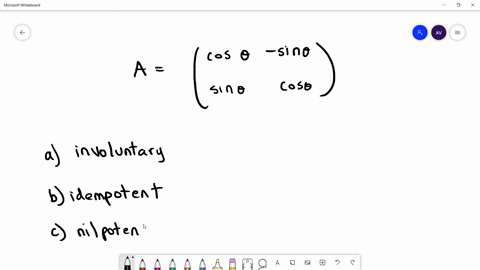 Microsoft Whiteboard
AV
A = ( cos θ -sinθ
sinθ cosθ )
a) involuntary
b) idempotent
c) nilpoten